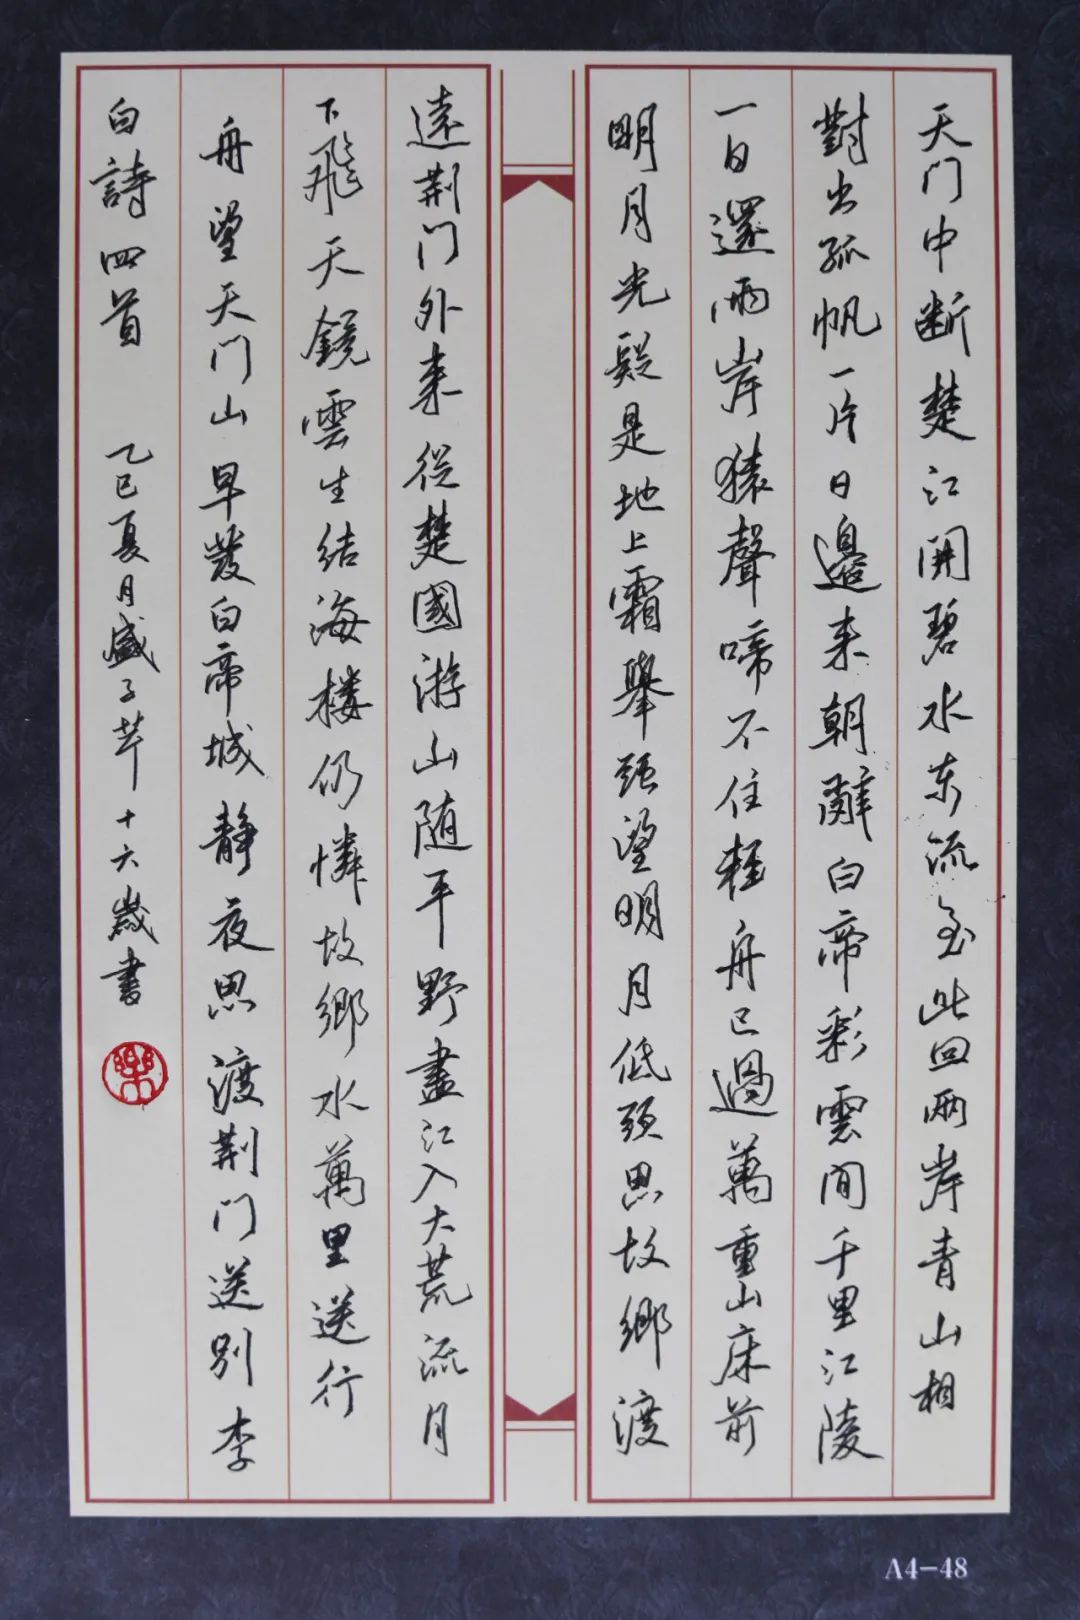 天门中断楚江開碧水东流至此回兩岸青山相
對出孤帆一片日邊来朝辭白帝彩雲間千里江陵
一日還兩岸猿聲啼不住輕舟已過萬重山床前
明月光疑是地上霜舉頭望明月低頭思故鄉渡
遠荆门外来從楚國游山随平野盡江入大荒流月
下飛天鏡雲生結海楼仍憐故鄉水萬里送行
舟望天门山早發白帝城靜夜思渡荆门送别李
白詩四首 乙巳夏月盛子芊十六歲書
樂
A4-48